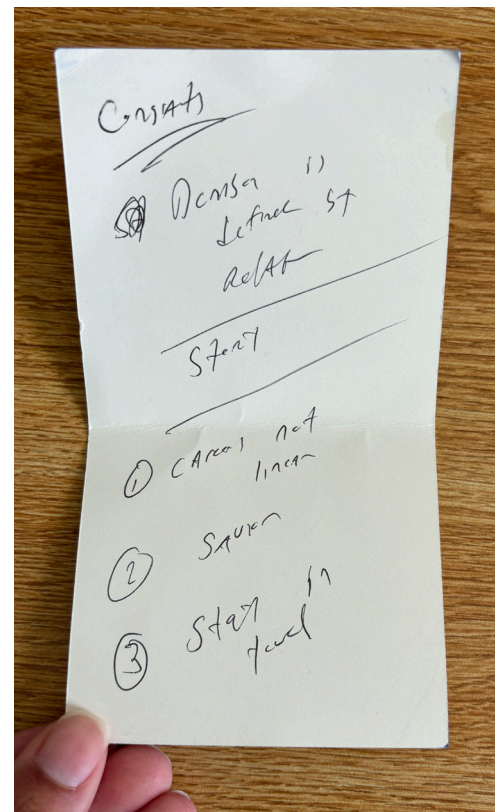 Congrats
Denison is
defined by
relation
Story
① Careers not
linear
②
③ Stay in
touch